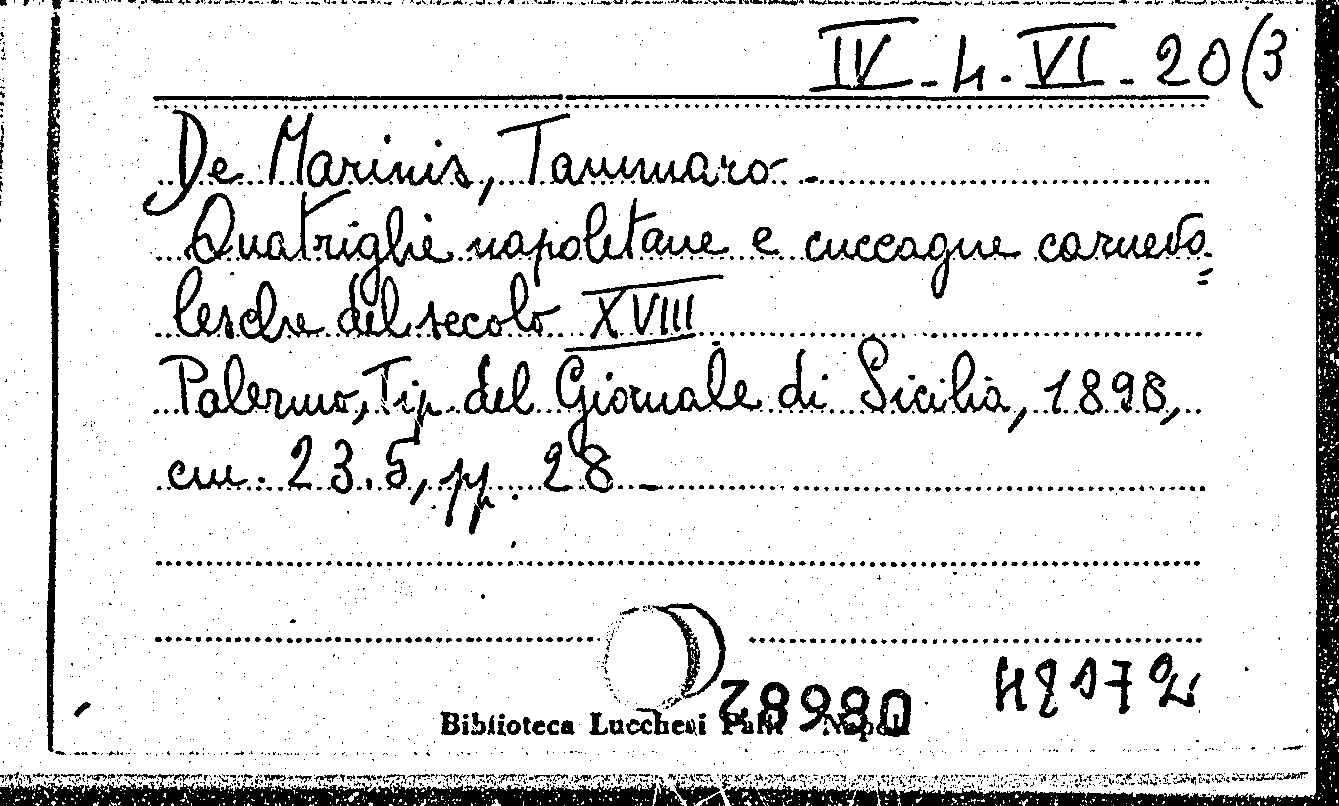 IV-4.VI-20(3
De Marinis, Tammaro -
Quatriglie napoletane e cuccagne carneva=
lesche del secolo XVIII
Palermo, Tip. del Giornale di Sicilia, 1898,
cm. 23.5, pp. 28 -
Biblioteca Lucchesi Palli Napoli